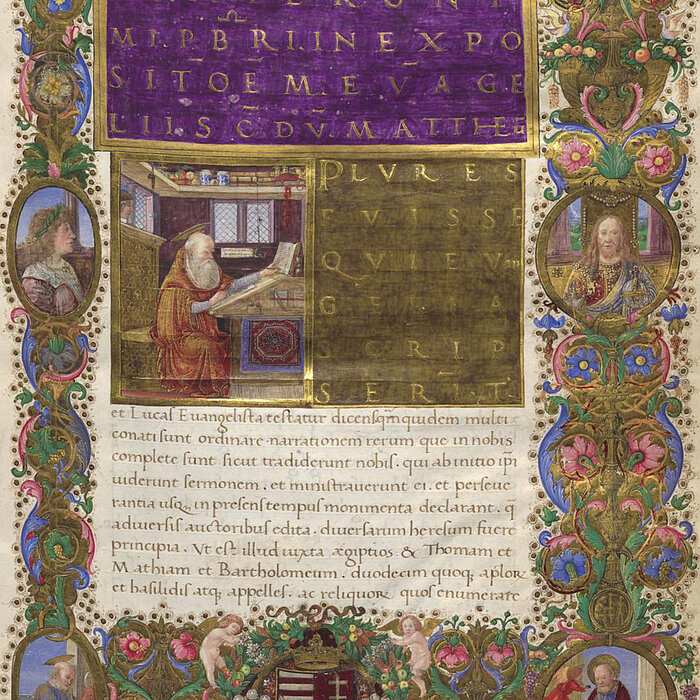 MI.P.BRI.INEXPO
SITOEM.EVAGE
LII SCDV.MATTHEu
PLVRES
FVISSE
QVIEVan
GELIA
SCRIP
SERIXT.
et Lucas Evangelista testatur dicens qm quidem multi
conati sunt ordinare narrationem rerum que in nobis
complete sunt sicut tradiderunt nobis. qui ab initio ipi
viderunt sermonem. et ministraverunt ei. et perseve
rantia usq, in presens tempus monumenta declarant. q
a diversis auctoribus edita. diversarum heresum fuere
principia. Vt est illud iuxta ægiptios. & Thomam et
Mathiam et Bartholomeum. duodecim quoq, aplor
et basilidis atq, appelles. ac reliquor quos enumerare